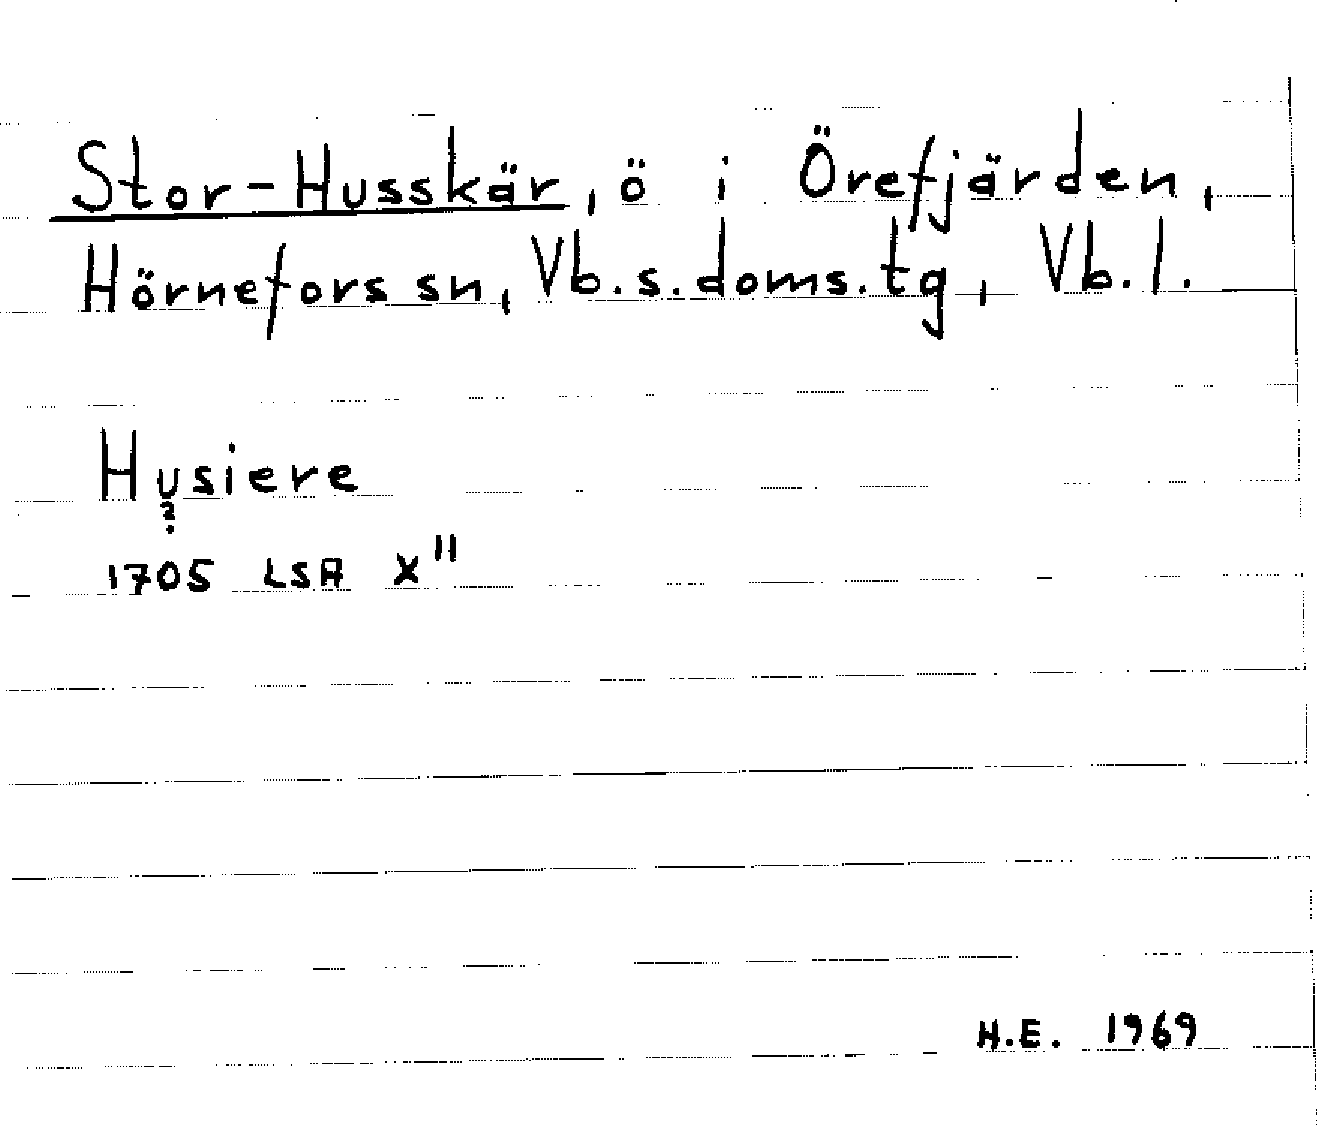 Stor-Husskär, ö i Örefjärden,
Hörnefors sn, Vb.s.doms.tg, Vb.l.
Husiere
?
1705 LSA X"
H.E. 1969